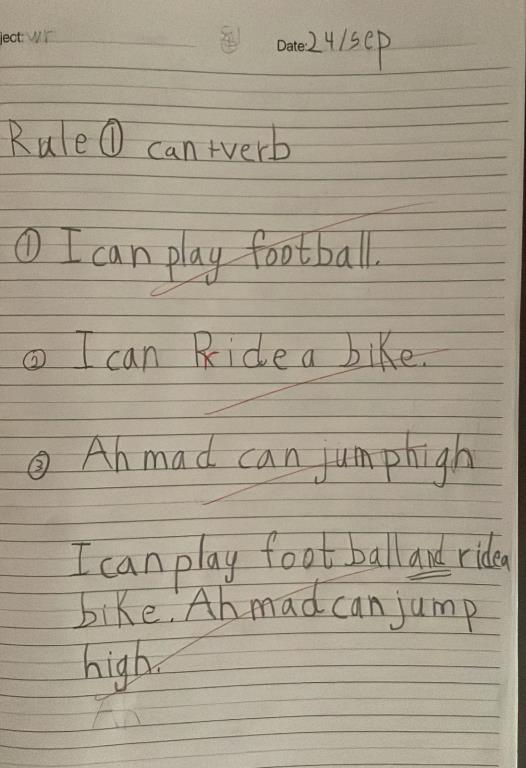 ject: wr
Date: 24/sep
Rule ① can + verb
① I can play football.
② I can Ride a bike.
③ Ahmad can jump high
I can play foot ball and ride a
bike. Ahmad can jump
high.